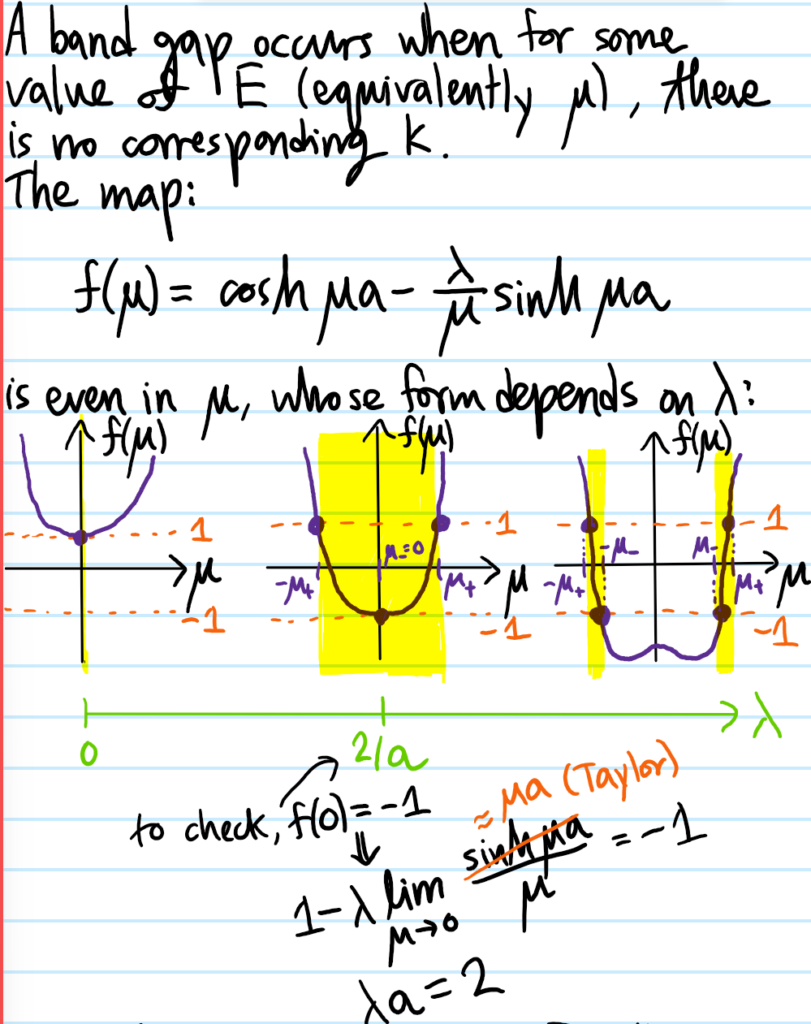 A band gap occurs when for some
value of E (equivalently μ), there
is no corresponding k.
The map:
f(μ) = cosh μa - λ/μ sinh μa
is even in μ, whose form depends on λ:
f(μ) f(μ) f(μ)
1 1 1
μ₋=0 -μ₋ μ₋
μ -μ₊ μ₊ μ -μ₊ μ₊ μ
-1 -1 -1
0 2/a λ
≈ μa (Taylor)
to check, f(0) = -1
⇓
1 - λ lim μ→0 sinh μa/μ = -1
λa = 2